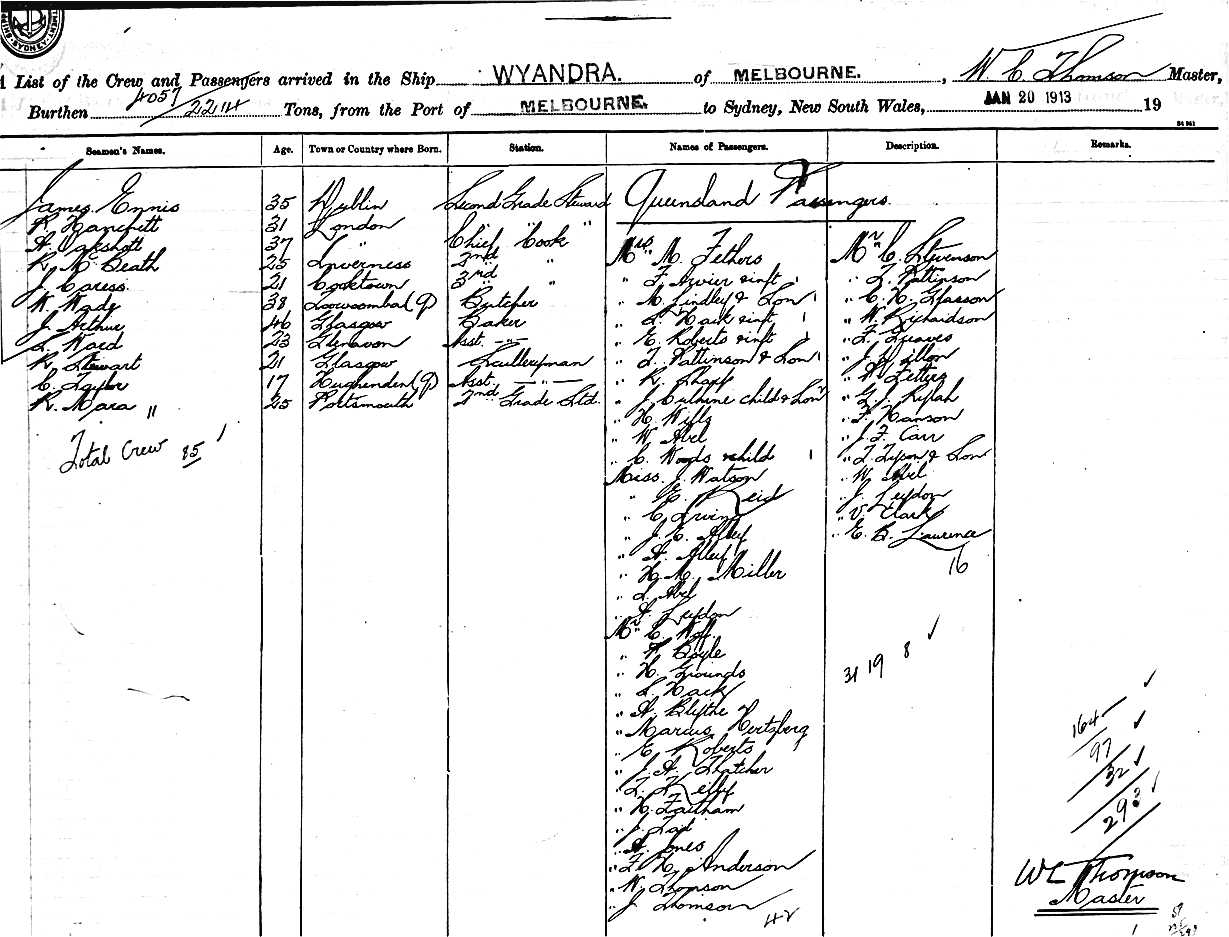 SYDNEY
List of the Crew and Passengers arrived in the Ship WYANDRA. of MELBOURNE. , W. C. Thomson Master,
Burthen 4057/2214 Tons, from the Port of MELBOURNE. to Sydney, New South Wales, JAN 20 1913 19
Seamen's Names. Age. Town or Country where Born. Station. Names of Passengers. Description. Remarks.
James Ennis 35 Dublin Second Grade Steward
R. Hanchett 31 London " " "
A. Oakshott 37 " Chief Cook
R. McBeath 25 Inverness 2nd "
J. Caress 21 Cooktown 3rd "
W. Wade 38 Toowoomba (Q) Butcher
J. Arthur 46 Glasgow Baker
L. Ward 23 Glenavon Asst. — " —
R. Stewart 21 Glasgow Sculleryman
C. Taylor 17 Hughenden (Q) Asst. — " —
R. Mara " 25 Portsmouth 2nd Grade Std.
Total Crew 85
Queensland Passengers.
Mrs M. Fethers
" F. & inft
" M. Lindley & Son
" L. Hack & inft
" E. Roberts & inft
" T. Pattinson & Son
" R.
" J. child & Son
" H. Wills
" W. Abel
" C. Woods & child
Miss J. Watson
" E. Reid
" C. Irving
" J. E. Alley
" A. Alley
" H. M. Miller
" L. Abel
" A. Leydon
Mr C.
" A. Boyle
" H. Grounds
" L. Hack
" A. Blythe
" Marcus Hertzberg
" E. Roberts
" J. A. Thatcher
" T. Kelly
" H.
" J.
" A. Jones
" F. H. Anderson
" W. Thomson
" J. Thomson
42
Mr C. Stevenson
" T. Pattinson
" C. H. Glasson
" W. Richardson
" F. Greaves
" J. Dillon
" A.
" G. J.
" F. Hanson
" J. F. Carr
" T. Tyson & Son
" W. Abel
" J. Leydon
" V. Clark
" E. B. Laurence
16
31 19 8
164
97
32
293
WC Thomson
Master